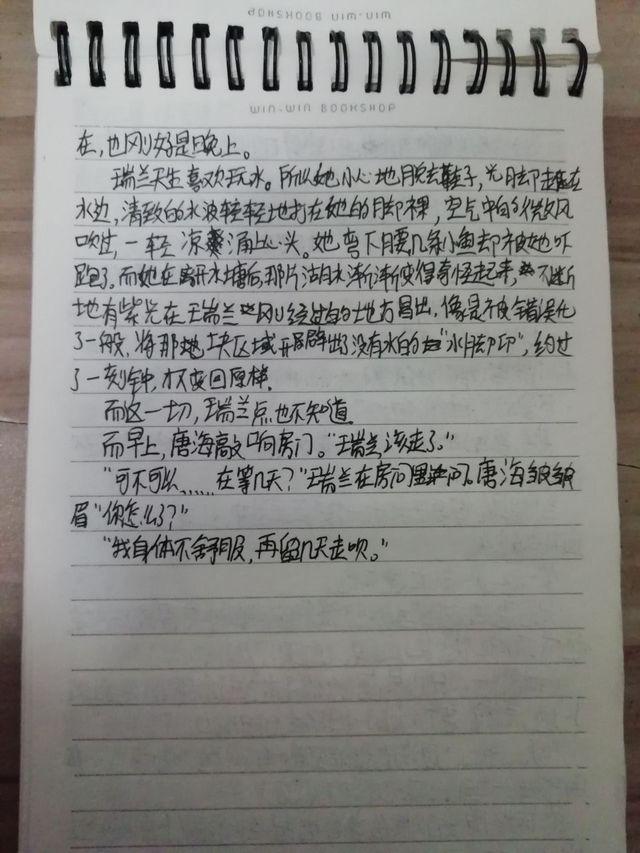 WIN-WIN BOOKSHOP
WIN-WIN BOOKSHOP
在,也刚好是晚上。
瑞兰天生喜欢玩水。所以她小心地脱去鞋子,光脚走在
水边,清致的水波轻轻地打在她的脚裸,空气中的微风
吹过,一轻凉爽涌上心头。她弯下腰几条小鱼却被她吓
跑了。而她在离开水塘后,那片湖水渐渐变得奇怪起来,不断
地有紫光在瑞兰刚经过的地方冒出,像是被错误化
了一般,将那地块区域开辟出了没有水的"水脚印",约过
了一刻钟,才变回原样.
而这一切,瑞兰点也不知道.
而早上,唐海敲响房门。"瑞兰,该走了。"
"可不可以......在等几天?"瑞兰在房间里问。唐海皱皱
眉"你怎么了?"
"我身体不舒服,再留几天走呗。"